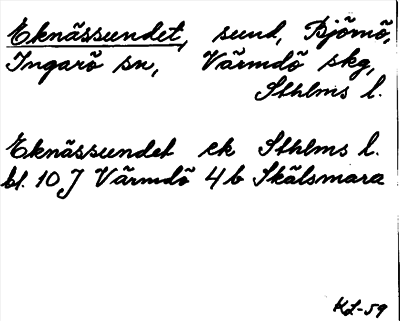 Eknässundet, sund, Björnö,
Ingarö sn, Värmdö skg,
Sthlms l.
Eknässundet ek Sthlms l.
bl. 10 J Värmdö 4 b Skälsmara
KL-59